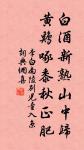 白酒新熟山中歸
黃鷄啄黍秋正肥
李白南陵別兒童入京
詞典網喜